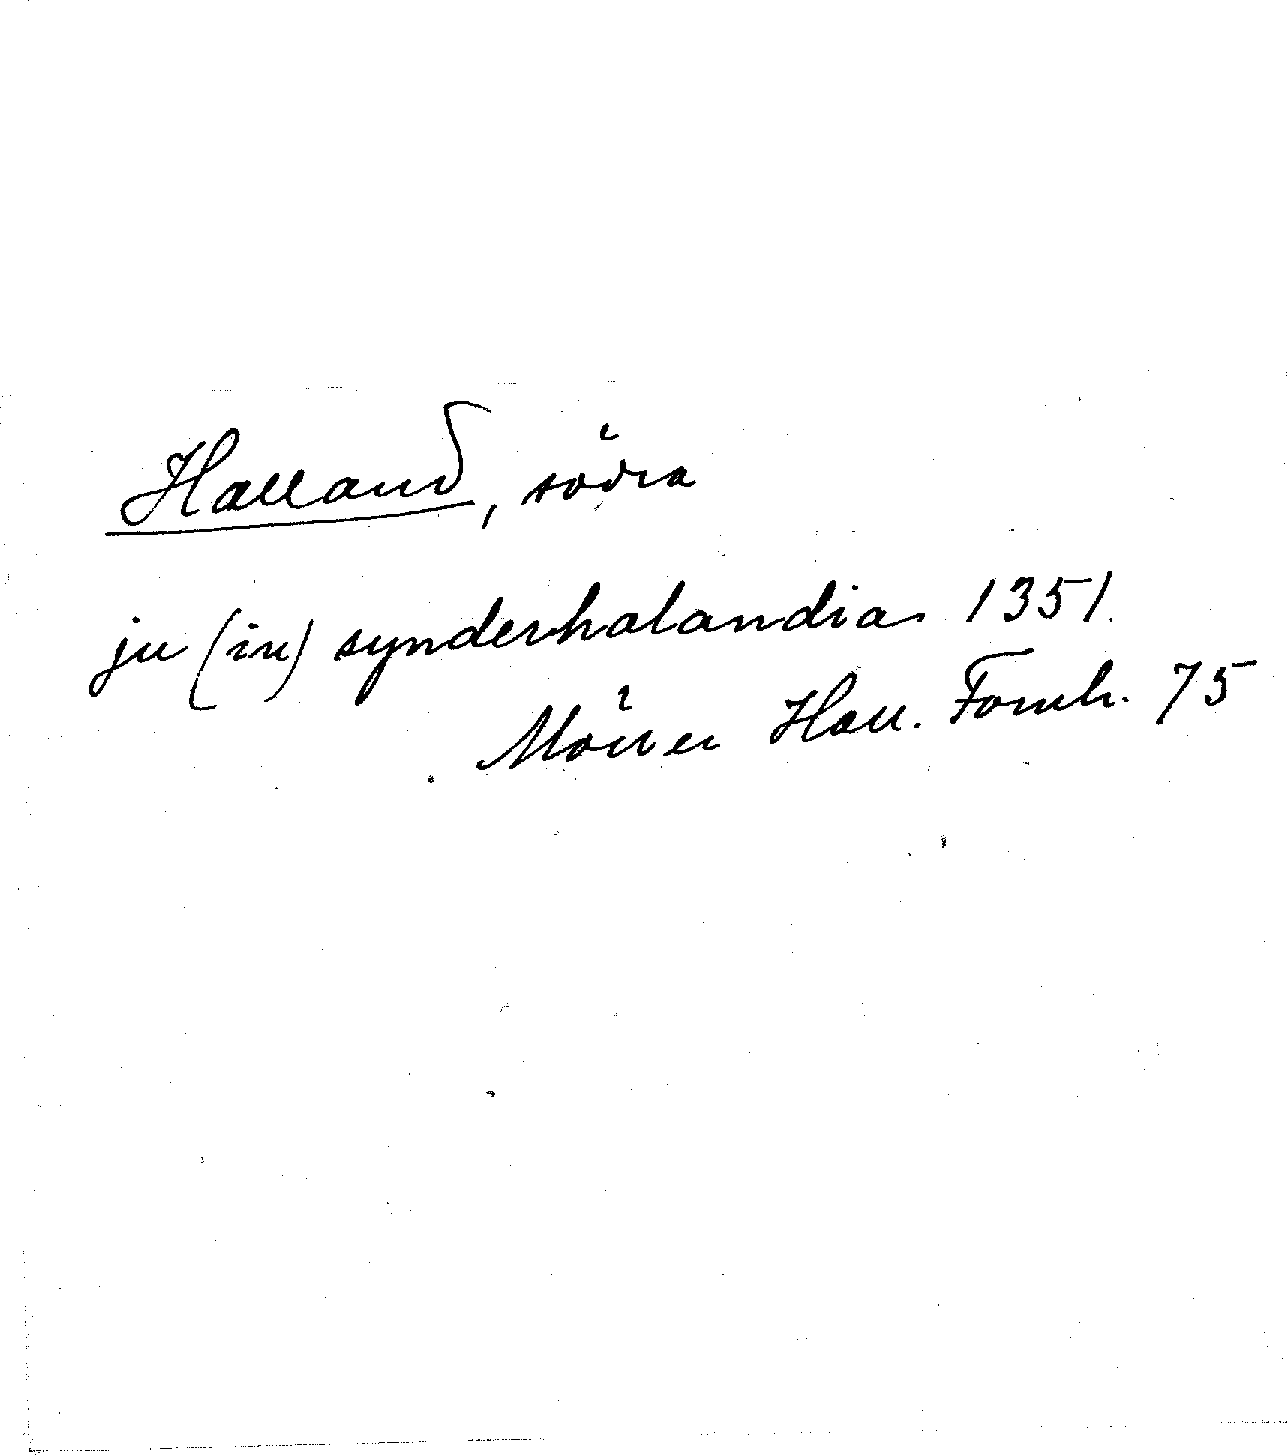 Halland, södra
ju (in) synderhalandia 1351.
Möller Hall. Fornh. 75